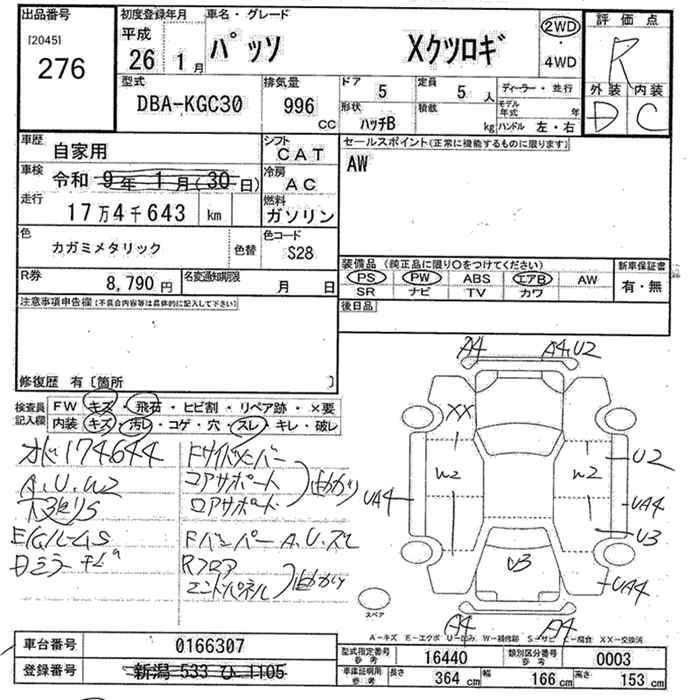 出品番号 [2045] 276
初度登録年月 平成 26 1月
車名・グレード パッソ Xクツロギ
2WD・4WD
評価点 R
外装 D 内装 C
型式 DBA-KGC30
排気量 996 CC
ドア 5
形状 ハッチB
定員 5人
積載 kg
ディーラー・並行
モデル年式 年
ハンドル 左・右
車歴 自家用
シフト CAT
車検 令和 9年 1月(30日)
冷房 AC
走行 17万4千643 km
燃料 ガソリン
色 カガミメタリック 色替
色コード S28
R券 8,790円
名変通知期限 月 日
セールスポイント(正常に機能するものに限ります)
AW
装備品(純正品に限り○をつけてください)
PS PW ABS エアB AW
SR ナビ TV カワ
新車保証書 有・無
後日品
注意事項申告欄(不具合内容等は具体的に記入して下さい)
修復歴 有〔箇所 〕
検査員記入欄
FW キズ・飛石・ヒビ割・リペア跡・×要
内装 キズ・汚レ・コゲ・穴・スレ・キレ・破レ
174644
A.U.W2
Fサイドメンバー
コアサポート
ロアサポート
曲がり
FバンパーA.U.スレ
Rフロア
エンドパネル
曲がり
A4 A4.U2
XX
W2 W2
U2
UA4 UA4
U3
U3
UA4
A4 A4
スペア
A-キズ E-エクボ U-凹み W-補修跡 S-サビ C-腐食 XX-交換済
車台番号 0166307
登録番号 新潟 533 ひ 1105
型式指定番号 参考 16440
類別区分番号 参考 0003
車庫証明用 参考 長さ 364 cm 幅 166 cm 高さ 153 cm